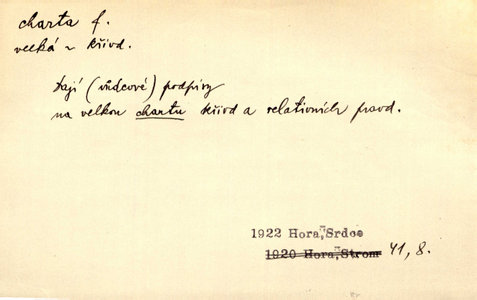 charta f.
velká ~ křivd.
Dají (vůdcové) podpisy
na velkou chartu křivd a relativních pravd.
1922 Hora, Srdce
1920 Hora, Strom 41, 8.